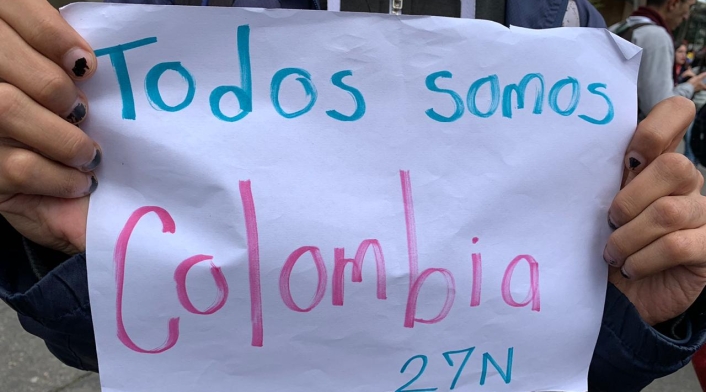 Todos somos
Colombia
27N